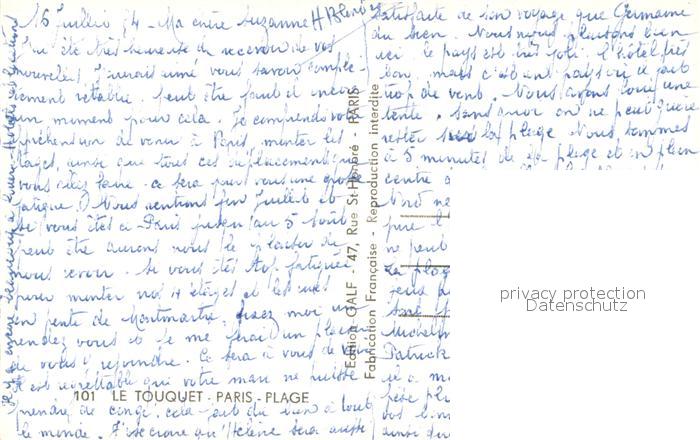 16 Juillet 74 - Ma chère Suzanne
J'ai été très heureuse de recevoir de vos
nouvelles. J'aurais aimé vous savoir complè-
tement rétablie. Peut être faut il encore
un moment pour cela. Je comprends votre
appréhension de venir à Paris, monter les
étages, ainsi que tous ces déplacements que
vous allez faire. ce sera pour vous une grosse
fatigue. Nous rentrons fin Juillet et
si vous êtes à Paris jusqu'au 5 Août
peut être aurons nous le plaisir de
nous revoir. Si vous êtes trop fatiguée
pour monter nos 4 étages et les rues
en pente de Montmartre, fixez moi un
rendez vous et je me ferai un plaisir
de vous y rejoindre. Ce sera à vous de
Il est regrettable que votre mari ne puisse
prendre de congé, cela fait du bien à tout
le monde. J'espère qu'Hélène sera aussi
satisfaite de son voyage que Germaine
du sien. Nous nous plaisons bien
ici le pays est très joli. l'hôtel très
bon, mais c'est un pays où il fait
trop de vent. Nous avons loué une
tente, sans quoi on ne peut guère
rester sur la plage. Nous sommes
à 5 minutes de la plage et en plein
centre
Nord ne
ne peut
la plage
Michel
Patrick
101 LE TOUQUET - PARIS - PLAGE
Edition GALF - 47, Rue St-Honoré - PARIS
Fabrication Française - Reproduction interdite
privacy protection
Datenschutz